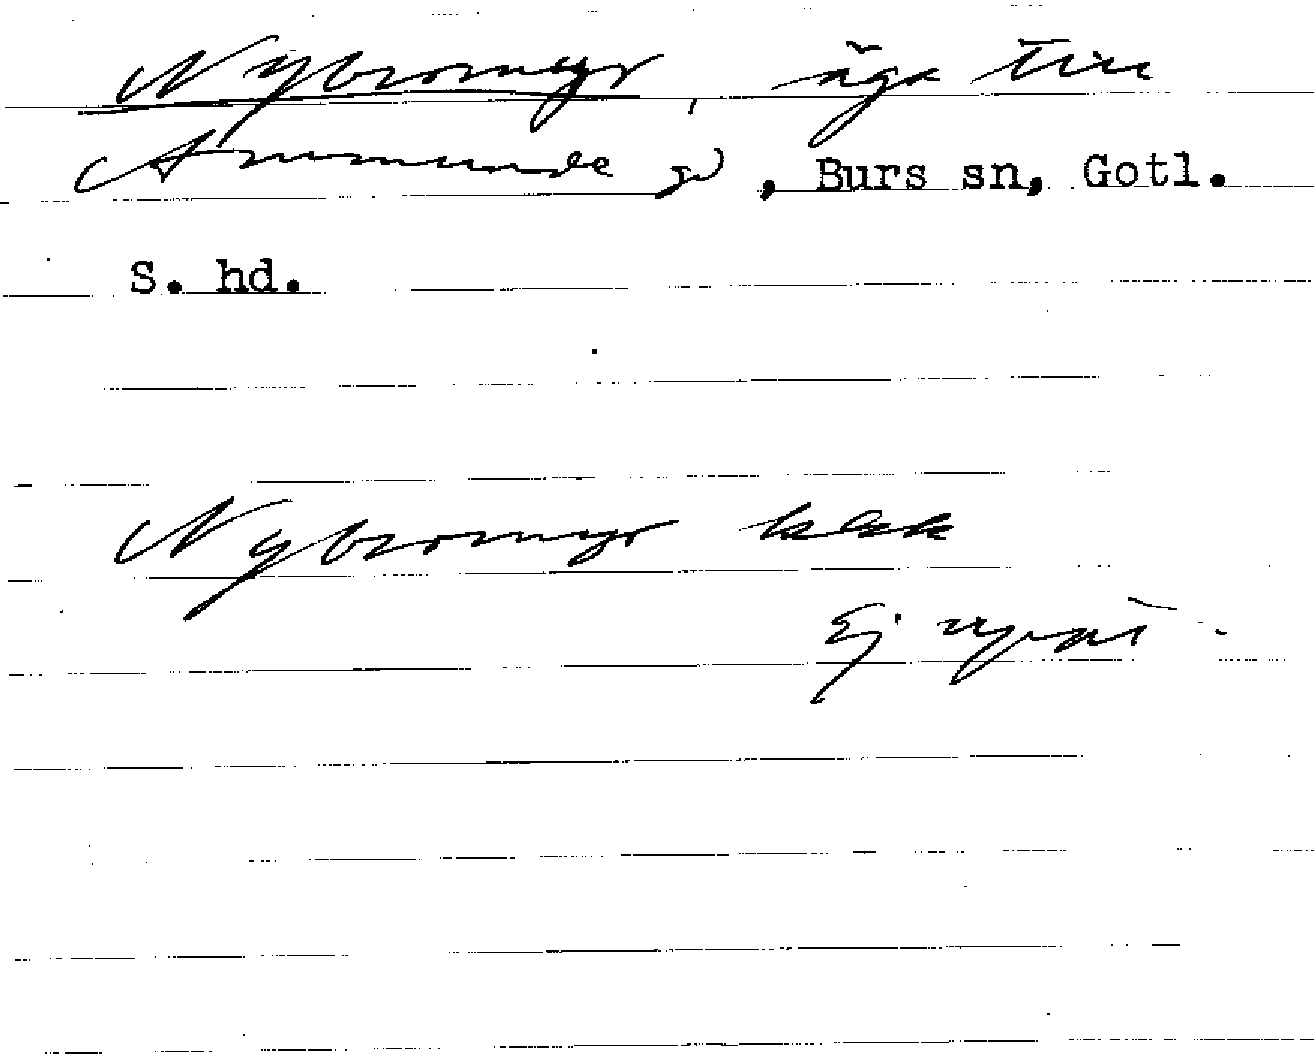 Nybromyr, äga till
Ammunde gd, Burs sn, Gotl.
S. hd.
Nybromyr
Ej uppt.